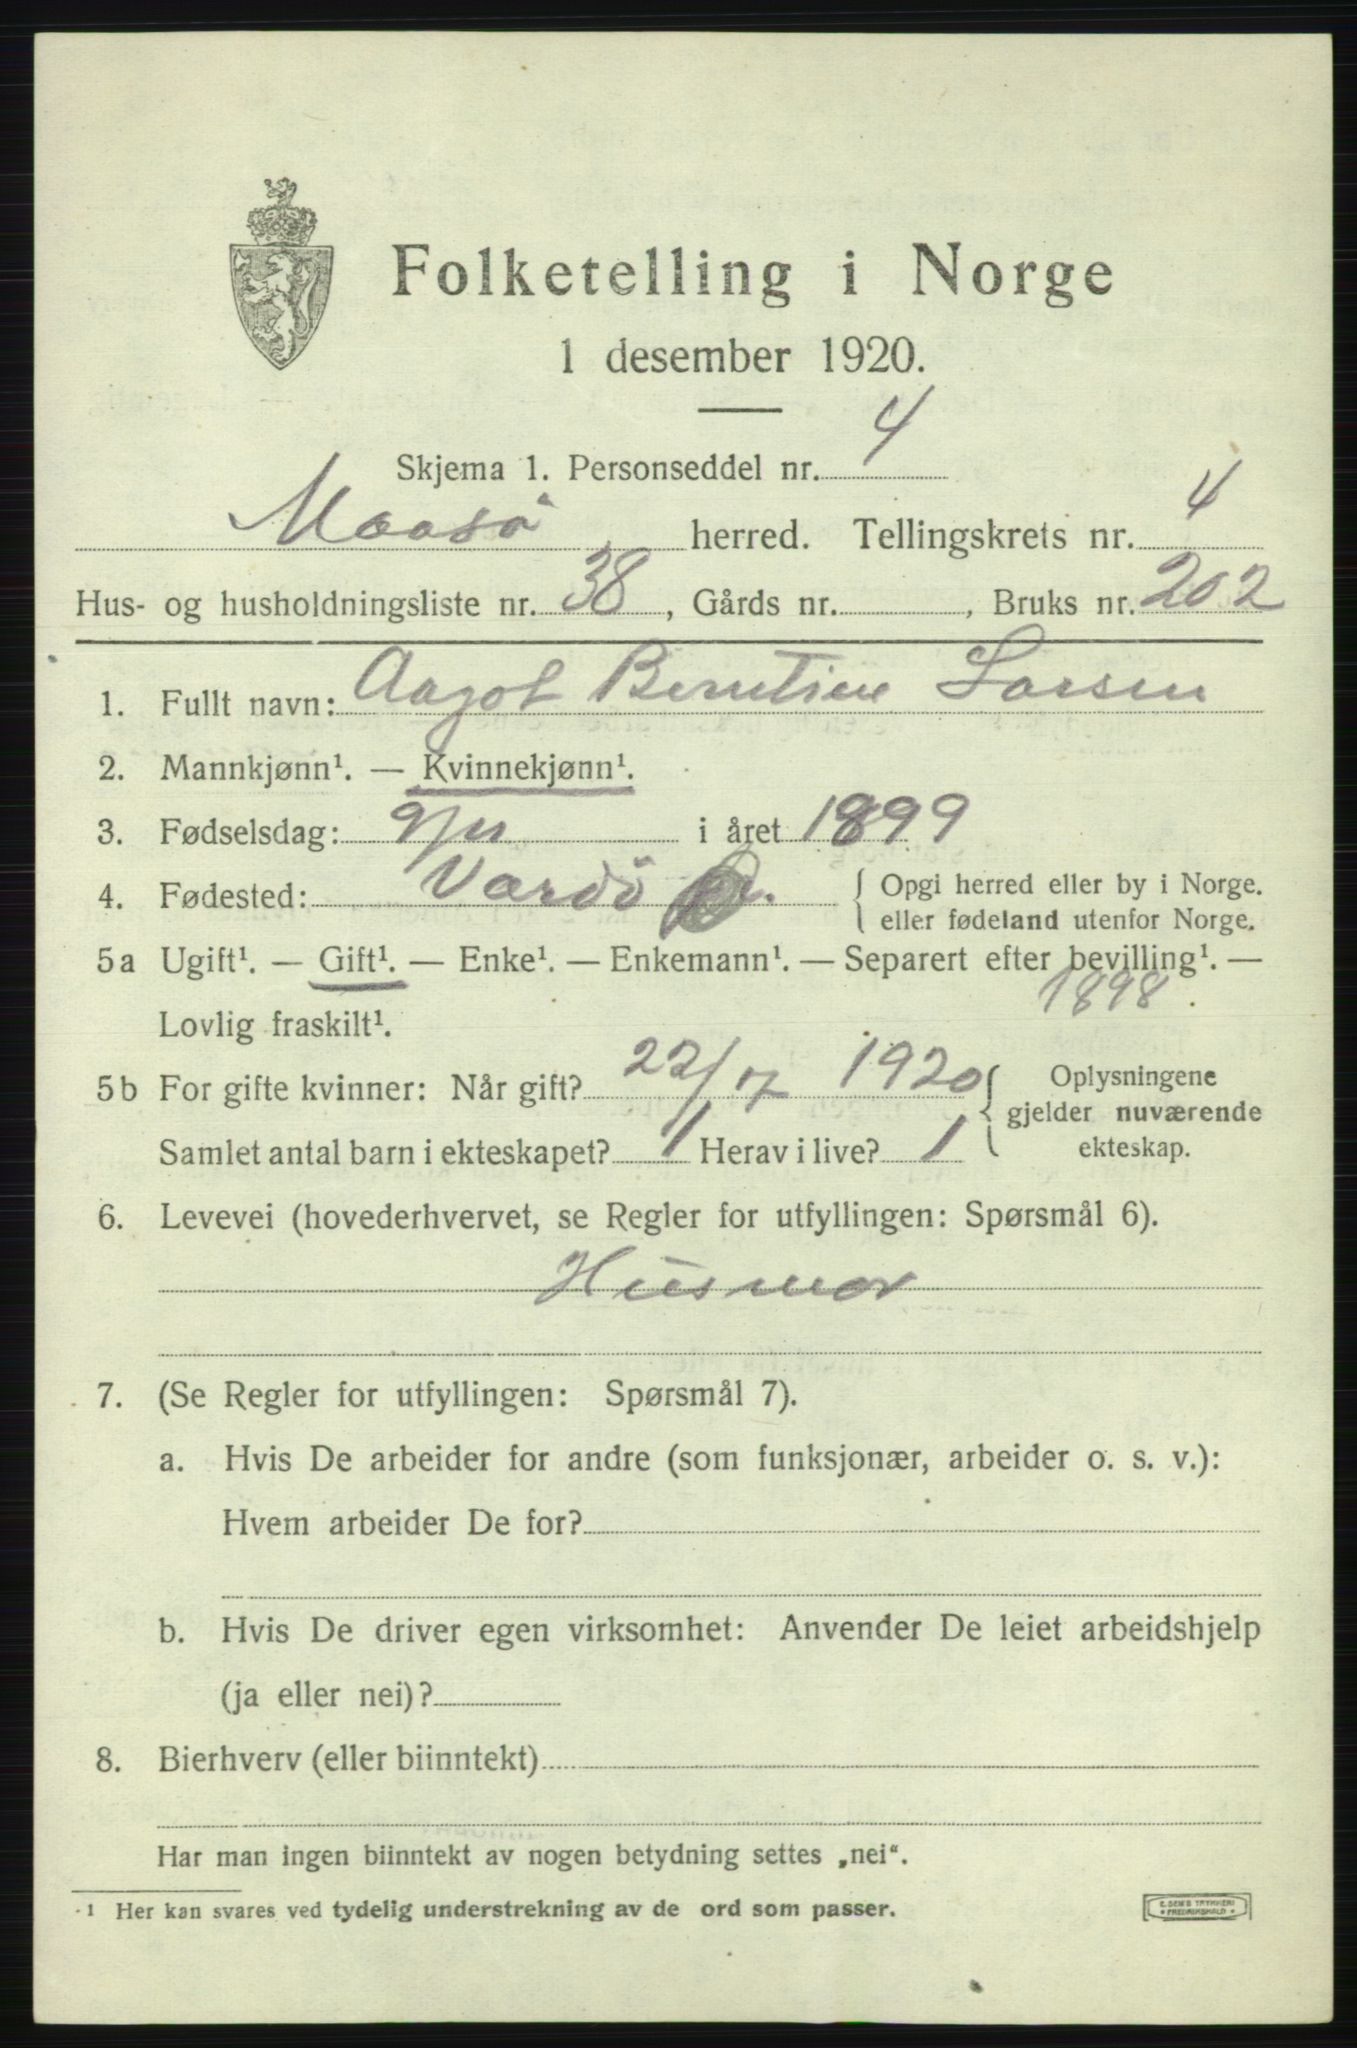 Folketelling i Norge
1 desember 1920.
Skjema 1. Personseddel nr. 4
Maasö herred. Tellingskrets nr. 4
Hus- og husholdningsliste nr. 38, Gårds nr. , Bruks nr. 202
1. Fullt navn: Aagot Berntine Larsen
2. Mannkjønn¹. — Kvinnekjønn¹.
3. Fødselsdag: i året 1899
4. Fødested: Vardö { Opgi herred eller by i Norge.
eller fødeland utenfor Norge.
5a Ugift¹. — Gift¹. — Enke¹. — Enkemann¹. — Separert efter bevilling¹. —
1898.
Lovlig fraskilt¹.
5b For gifte kvinner: Når gift? 22/7 1920 { Oplysningene
gjelder nuværende
Samlet antal barn i ekteskapet? 1 Herav i live? 1 ekteskap.
6. Levevei (hovederhvervet, se Regler for utfyllingen: Spørsmål 6).
Husmor
7. (Se Regler for utfyllingen: Spørsmål 7).
a. Hvis De arbeider for andre (som funksjonær, arbeider o. s. v.):
Hvem arbeider De for?
b. Hvis De driver egen virksomhet: Anvender De leiet arbeidshjelp
(ja eller nei)?
8. Bierhverv (eller biinntekt)
Har man ingen biinntekt av nogen betydning settes „nei“.
¹ Her kan svares ved tydelig understrekning av de ord som passer.